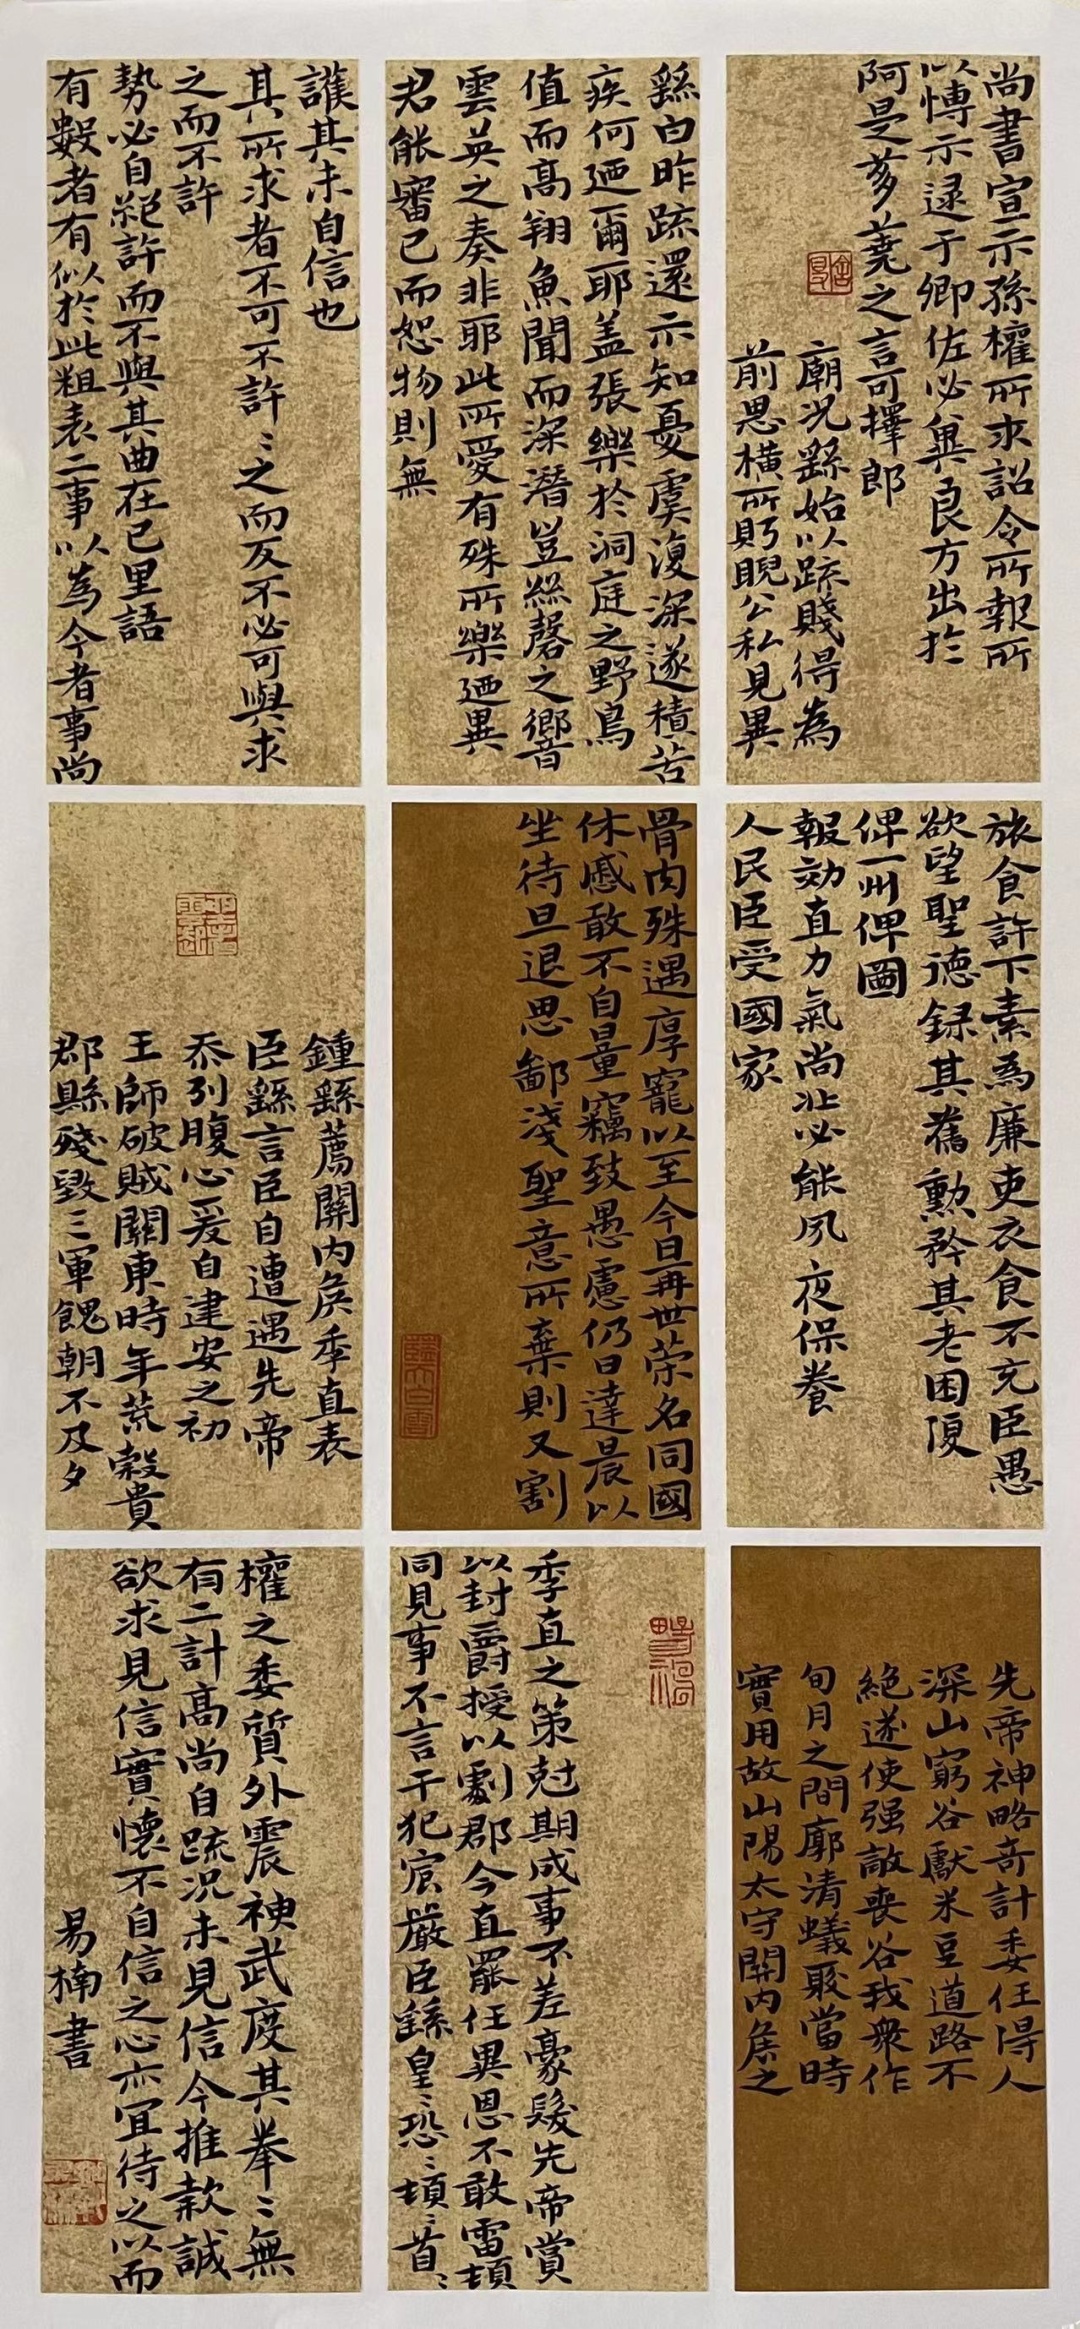 尚書宣示孫權所求詔令所報所
以博示逯于卿佐必㒸良方出於
阿是芻蕘之言可擇郎
廟況繇始以疏賤得為
前恩橫所眄睨公私見異
繇白昨疏還示知憂虞復深遂積苦
疾何廼爾耶盖張樂於洞庭之野鳥
值而高翔魚聞而深潛豈絲磬之響
雲英之奏非耶此所愛有殊所樂廼異
君能審己而恕物則無
護其未自信也
其所求者不可不許許之而反不必可與求
之而不許
勢必自絕許而不與其曲在己里語
有數者有似於此粗表二事以為今者事尚
旅食許下素為廉吏衣食不充臣愚
欲望聖德錄其舊勳矜其老困復
俾一州俾圖
報効直力氣尚壯必能夙夜保養
人民臣受國家
骨肉殊遇厚寵以至今日再世荣名同國
休慼敢不自量竊致愚慮仍日達晨以
坐待旦退思鄙淺聖意所棄則又割
鍾繇薦關內侯季直表
臣繇言臣自遭遇先帝
忝列腹心爰自建安之初
王師破賊關東時年荒榖貴
郡縣殘毀三軍餽朝不及夕
先帝神略奇計委任得人
深山窮谷獻米豆道路不
絕遂使强敵喪谷我衆作
旬月之間廓清蟻聚當時
實用故山陽太守關內侯之
季直之策尅期成事不差豪髮先帝賞
以封爵授以劇郡今直罷任異恩不敢雷頓
同見事不言干犯宸嚴臣繇皇〻恐〻頓〻首〻
權之委質外震神武度其拳〻無
有二計高尚自疏況未見信今推款誠
欲求見信實懷不自信之心亦宜待之以而
易楠書